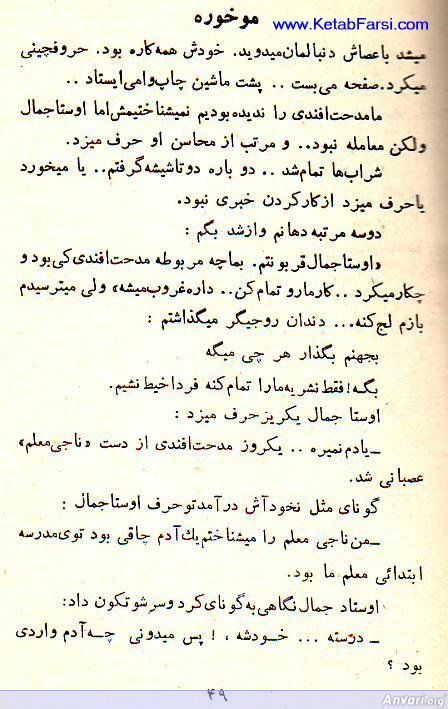 www.KetabFarsi.com
موخوره
میشد باعصاش دنبالمان میدوید. خودش همه‌کاره بود. حروفچینی
میکرد. صفحه می‌بست .. پشت ماشین چاپ وامی‌ایستاد ..
مامدحت‌افندی را ندیده‌بودیم نمیشناختیمش‌اما اوستاجمال
ولکن معامله نبود.. و مرتب از محاسن او حرف میزد.
شراب‌ها تمام‌شد .. دو باره دوتاشیشه‌گرفتم.. یا میخورد
یاحرف میزد ازکارکردن خبری نبود.
دوسه مرتبه دهانم وازشد بگم :
«اوستاجمال قربونتم. بماچه مربوطه مدحت‌افندی‌کی‌بود و
چکارمیکرد .. کارمارو تمام‌کن.. داره‌غروب‌میشه» ولی میترسیدم
بازم لج‌کنه... دندان روجیگر میگذاشتم :
بجهنم بگذار هر چی میگه
بگه! فقط نشریه‌مارا تمام‌کنه فرداخیط‌نشیم.
اوستا جمال یکریزحرف میزد :
ـ یادم‌نمیره .. یکروز مدحت‌افندی از دست «ناجی‌معلم»
عصبانی شد.
گونای مثل نخودآش درآمدتوحرف اوستاجمال :
ـ من‌ناجی معلم را میشناختم‌یك‌آدم چاقی بود توی‌مدرسه
ابتدائی معلم ما بود.
اوستاد جمال‌نگاهی‌به‌گونای‌کردوسرشوتکون داد:
ـ درسته ... خودشه ، ! پس میدونی چه‌آدم واردی
بود ؟
۴۹
Anvari.org